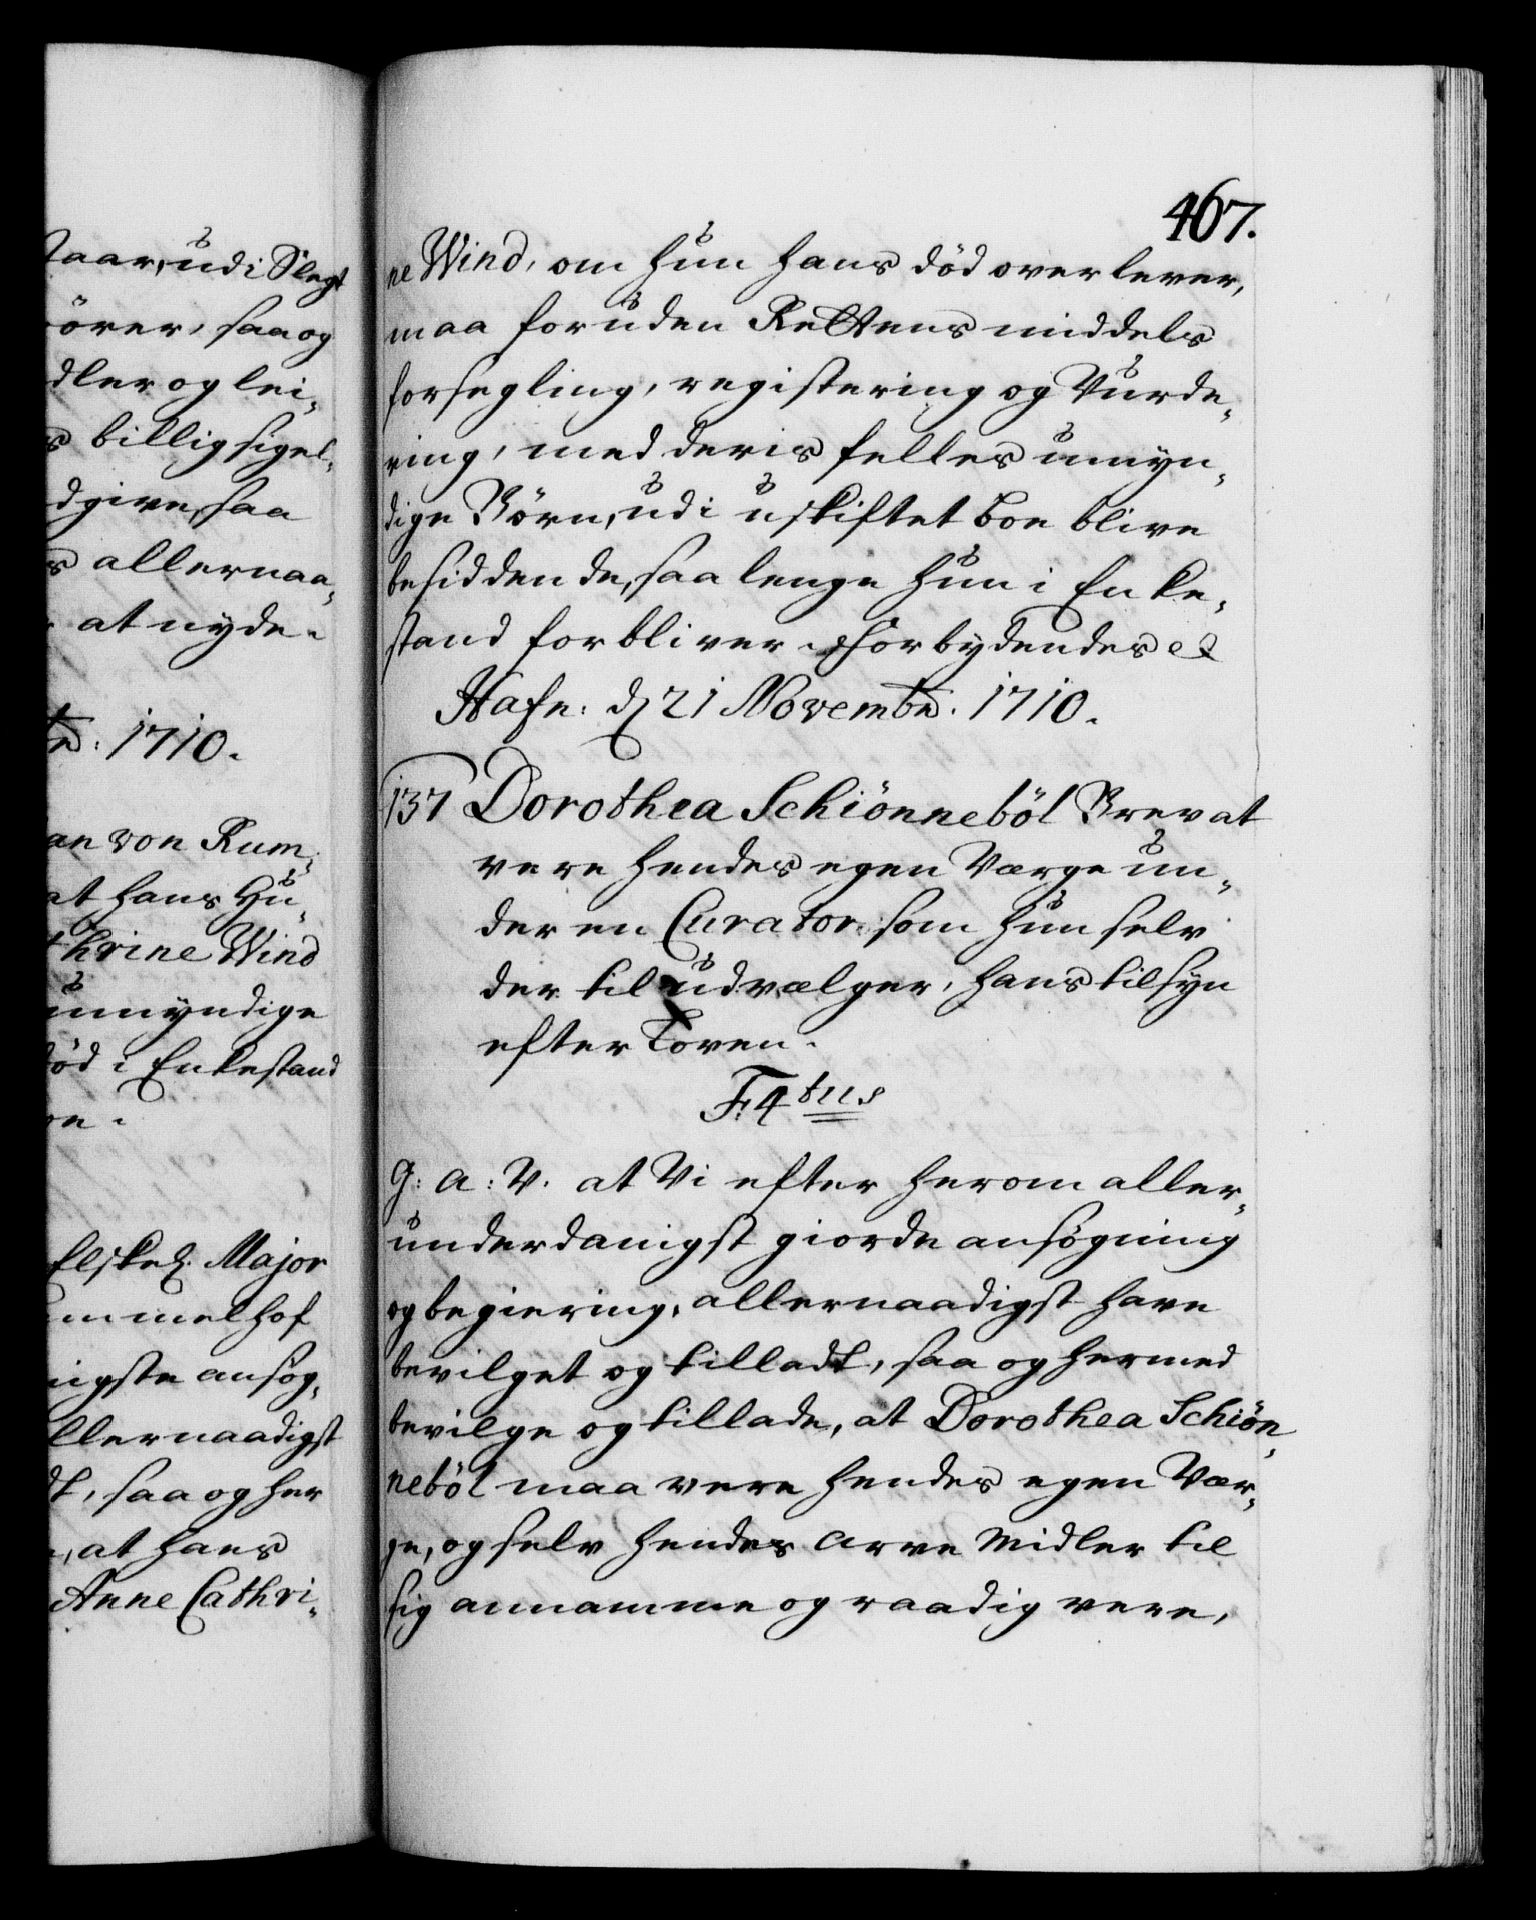 taar, udi Slegt
örer, saa og
dler og lei-
s billig sigel-
dgive, saa
s allernaa-
at nyde.
1710.
an von Rum-
at hans Hu-
thrine Wind
umyndige
död i Enkestand
Elskel. Major
ummelhof
nigste ansøg-
llernaadigst
dt, saa og her
, at hans
Anne Cathri-
467.
ne Wind, om hun hans död overlever,
maa foruden Rettens middels
forsegling, registering og Vurde-
ring, med deris felles umyn-
dige Börn, udi uskiftet boe blive
besiddende, saa lenge hun i Enke-
stand forbliver. Forbydendes etc
Hafn: d. 21 Novembr: 1710.
137 Dorothea Schiönneböl Brev at
vere hendes egen Værge un-
der en Curator, som hun selv
der til udvælger, hans tilsyn
efter Loven.
F: 4tus
G: A: V. at Vi efter herom aller-
underdanigst giorde ansøgning
og begiering, allernaadigst have
bevilget og tilladt, saa og hermed
bevilge og tillade, at Dorothea Schiön-
neböl maa vere hendes egen Vær-
ge, og selv hendes Arve Midler til
sig annamme og raadig vere,